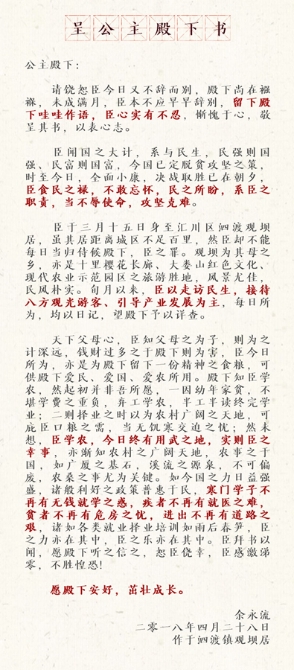 呈公主殿下书
公主殿下:
请饶恕臣今日又不辞而别,殿下尚在襁
褓,未成满月,臣本不应早早辞别,留下殿
下哇哇作语,臣心实有不忍,惭愧于心,敬
呈其书,以表心志。
臣闻国之大计,系与民生,民强则国
强、民富则国富,今国已定脱贫攻坚之策,
时至今日,全面小康,决战取胜已在朝夕,
臣食民之禄,不敢忘怀,民之所盼,系臣之
职责,当不辱使命,攻坚克难。
臣于三月十五日身至汇川区泗渡观坝
居,虽其居距离城区不足百里,然臣却不能
每日当归侍候殿下,臣之罪。观坝为其母之
乡,亦是十里樱花长廊、大娄山红色文化、
现代农业示范园区之旅游胜地,风景尤佳,
民风朴实。旬月以来,臣以走访民生,接待
八方观光游客、引导产业发展为主,每日所
为,均以日记,望殿下予以详查。
天下父母心,臣知父母之为子,则为之
计深远,钱财过多之于殿下则为害,臣今日
所为,亦是为殿下留下一份精神之食粮,可
供殿下爱民、爱国、爱农所用。殿下知臣学
农,然起初并非吾所愿,一因幼年家贫,不
堪学费之重负,弃工学农,半工半读终完学
业;二则择业之时以为农村广阔之天地,可
庇臣口粮之需,当无饥寒交迫之忧;然未
想,臣学农,今日终有用武之地,实则臣之
幸事,亦渐知农村之广阔天地,农事之于
国,如广厦之基石,溪流之源泉,不可偏
废,农桑之事尤为关键。如今国之力日益强
盛,诸般利好之政策普惠于民,寒门学子不
再有无钱就学之惑,疾者不再有就医之难,
贫者不再有危房之忧,进出不再有道路之
艰,诸如各类就业择业培训如雨后春笋,臣
之力亦在其中,臣之乐亦在其中。臣拜书以
闻,愿殿下听之信之,恕臣侥幸,臣感激涕
零,不胜惶恐!
愿殿下安好,茁壮成长。
余永流
二零一八年四月二十八日
作于泗渡镇观坝居